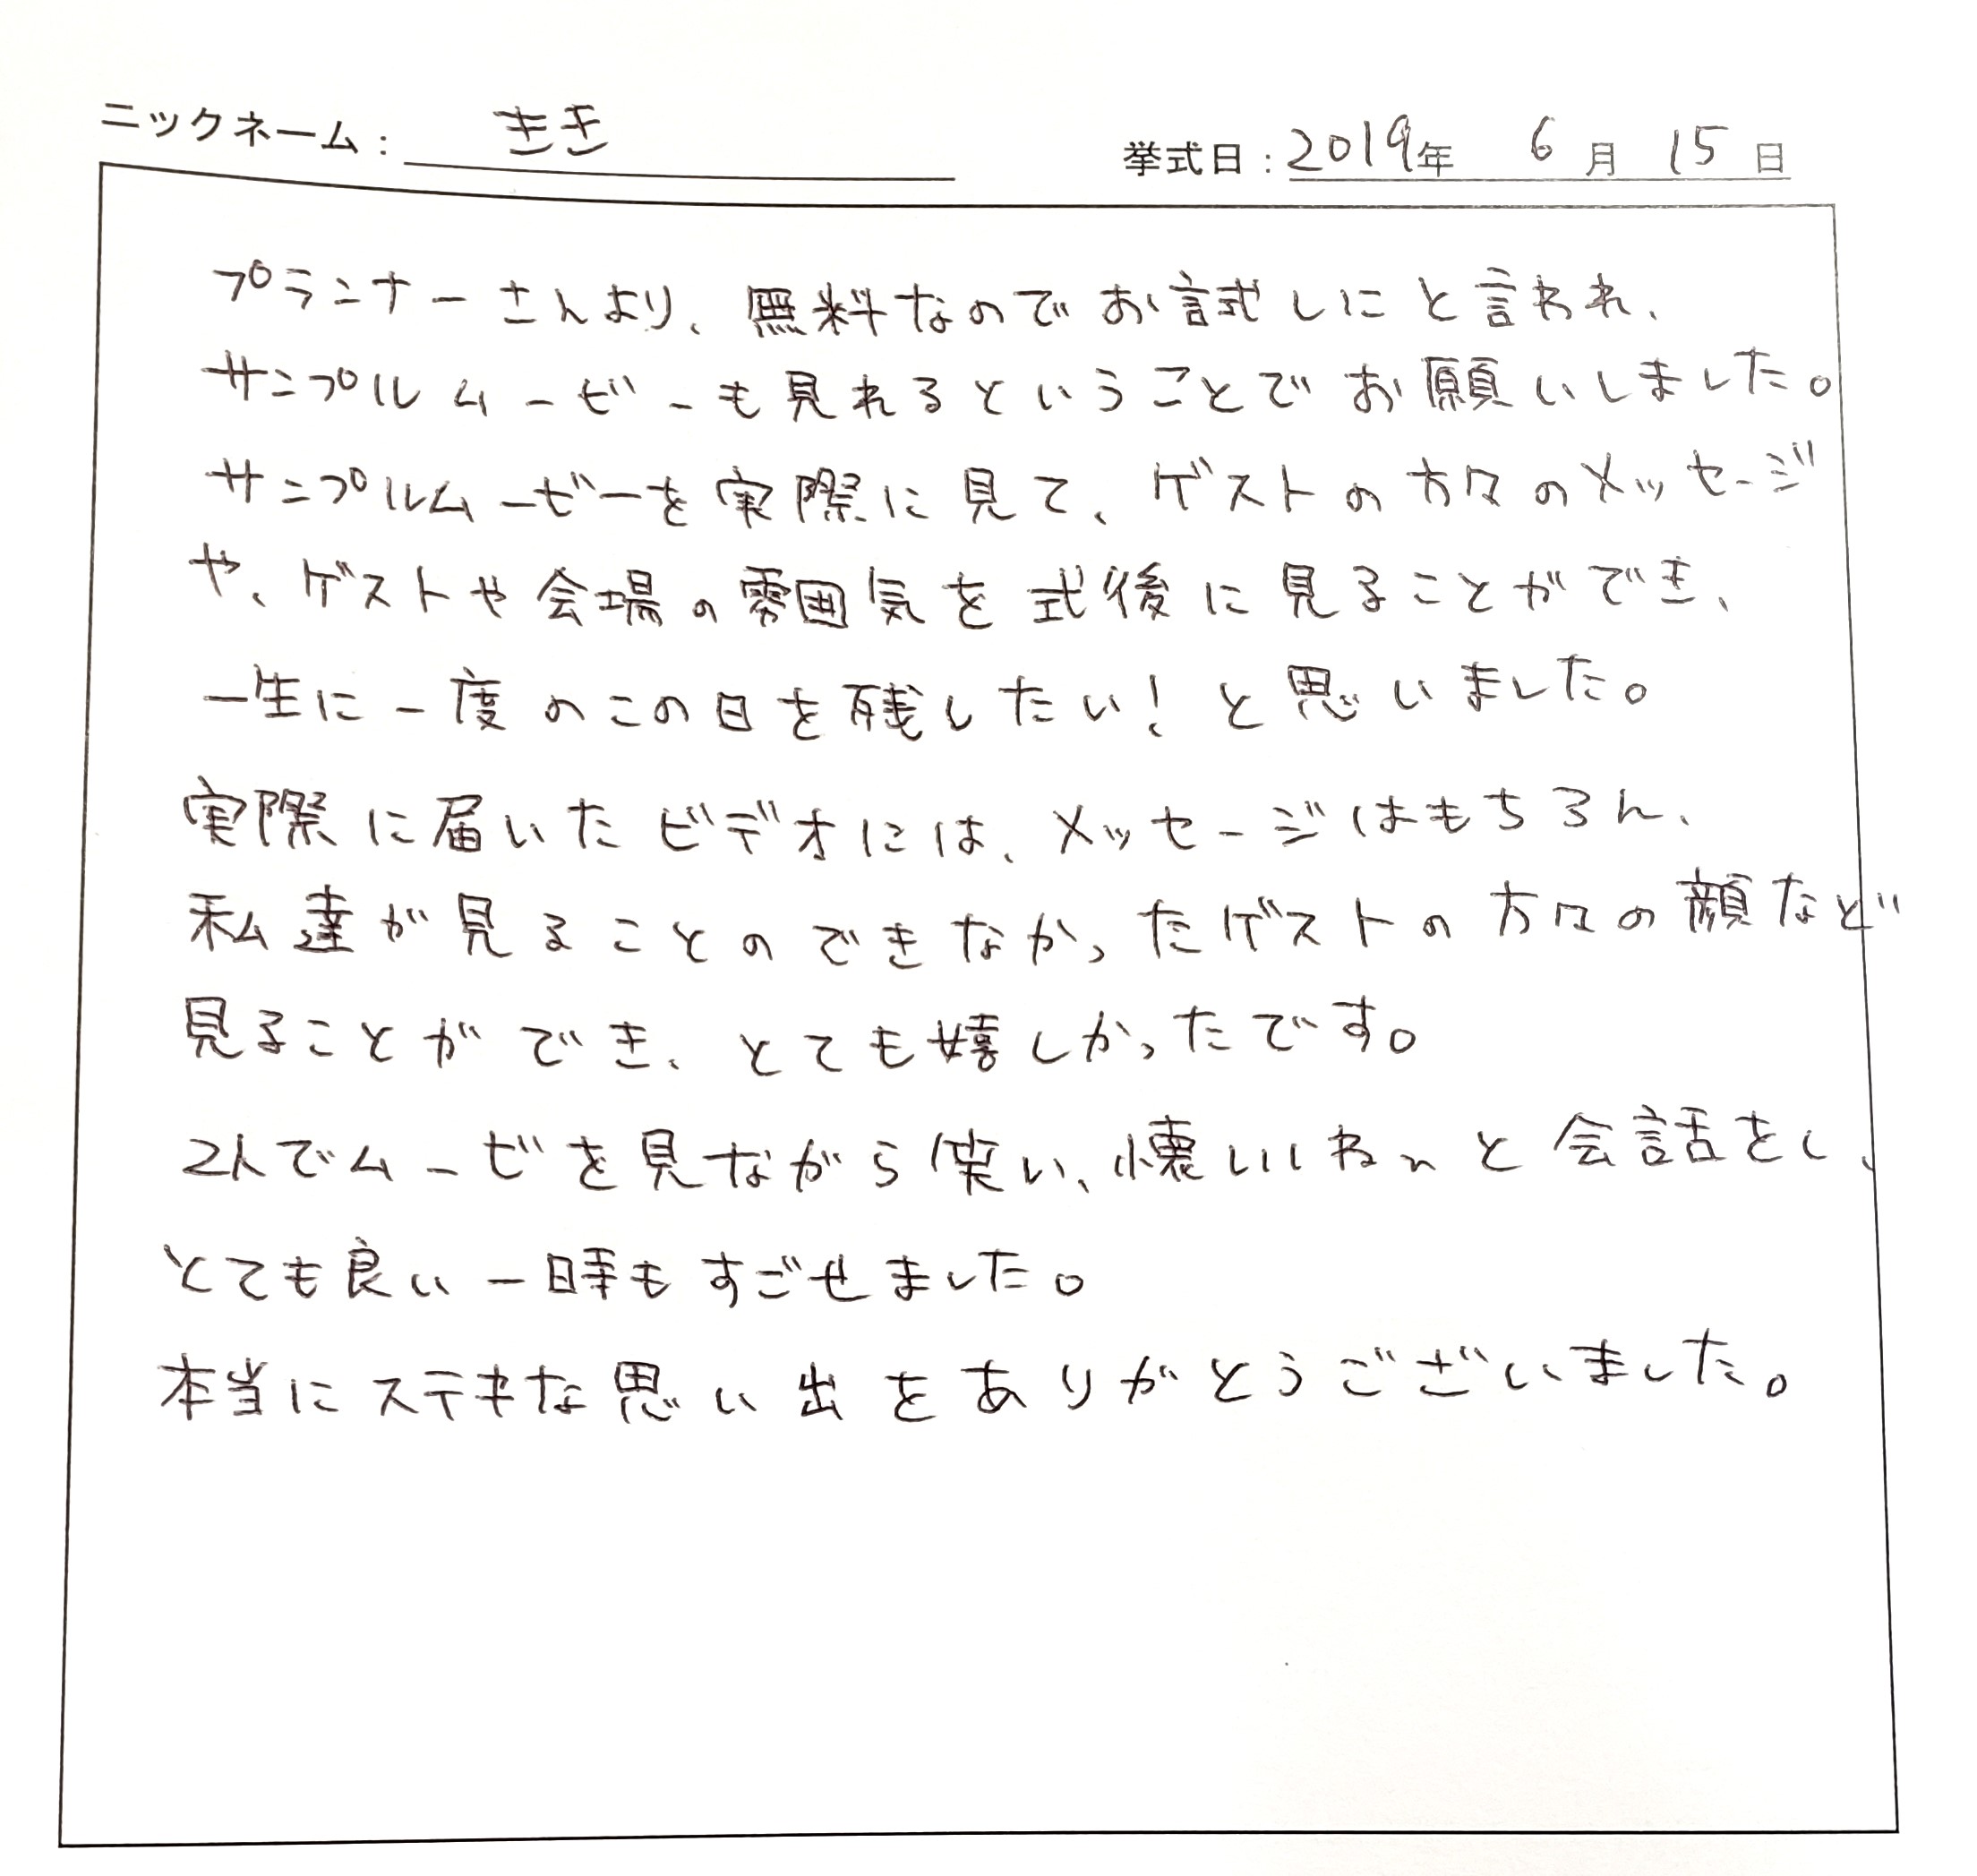 ニックネーム: きき
挙式日: 2019年 6月 15日
プランナーさんより、無料なのでお試しにと言われ、
サンプルムービーも見れるということでお願いしました。
サンプルムービーを実際に見て、ゲストの方々のメッセージ
や、ゲストや会場の雰囲気を式後に見ることができ、
一生に一度のこの日を残したい!と思いました。
実際に届いたビデオには、メッセージはもちろん、
私達が見ることのできなかったゲストの方々の顔など
見ることができ、とても嬉しかったです。
2人でムービを見ながら笑い、懐いいねぇと会話をし、
とても良い一時もすごせました。
本当にステキな思い出をありがとうございました。